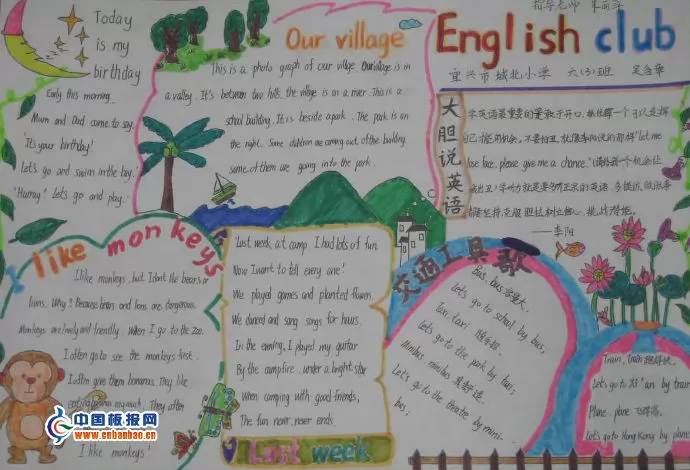 Today
is my
birthday
Early this morning.
Mum and Dad come to say.
"It's your birthday!
Let's go and swim in the bay."
"Hurray! Let's go and play."
Our village
This is a photo graph of our village. Our village is in
a valley. It's between two hills. the village is on a river. This is a
school building. It is beside a park. The park is on
the right. Some children are coming out of the building.
some of them are going into the park.
English club
指导老师
宜兴市城北小学 六(3)班
大胆说英语
学英语最重要的是敢于开口,抓住每一个可以选择
自己能用机会。不要怕丑,就像李阳说的那样"let me
lose face, please give me a chance."(请给我一个机会让
——李阳
I like monkeys
I like monkeys, but I don't like bears or
lions. Why? Because bears and lions are dangerous.
Monkeys are lively and friendly. When I go to the zoo.
I often go to see the monkeys first.
I often give them bananas. They like
very much. They often
I like monkeys!
Last week, at camp I had lots of fun.
Now I want to tell every one!
We played games and planted flowers.
We danced and sang songs for hours.
In the evening, I played my guitar
By the campfire, under a bright star
When camping with good friends,
The fun now, never ends
Last week
交通工具歌
Bus, bus 容量大.
Let's go to school by bus;
Taxi, taxi
Let's go to the park by taxi;
Minibus, minibus
Let's go to the theatre by mini-
bus;
Train, train 跑得快.
Let's go to Xi'an by train
Plane plane 飞得高.
Let's go to Hong Kong by plane
中国板报网
www.cnbanbao.cn